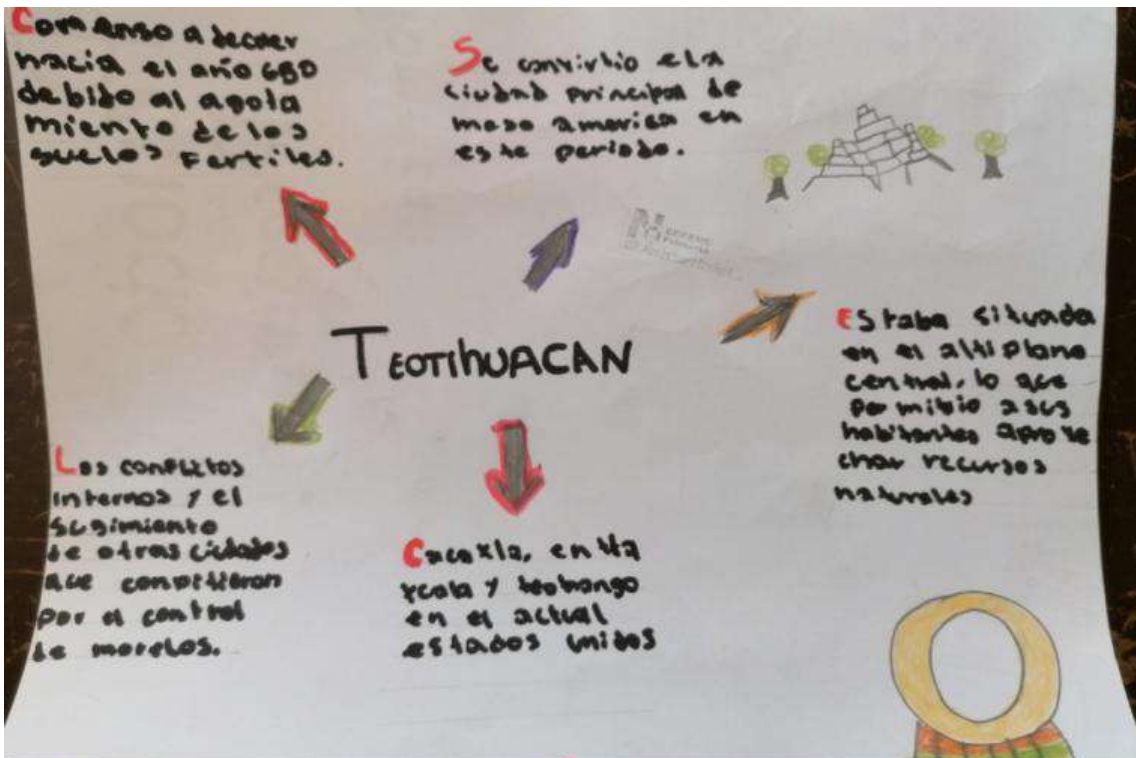 Comenso a decaer
hacia el año 650
debido al agota
miento de los
suelos Fertiles.
Se convirtio ela
ciudad principal de
meso america en
este periodo.
TEOTIhUACAN
EStaba situada
en el altiplano
central, lo que
permitio a sus
habitantes aprove
char recursos
naturales
Los conflictos
internos y el
sugimiento
de otras ciudades
que compitieron
por el control
de morelos.
Cacaxla, en tla
xcala y teotenango
en el actual
estados unidos